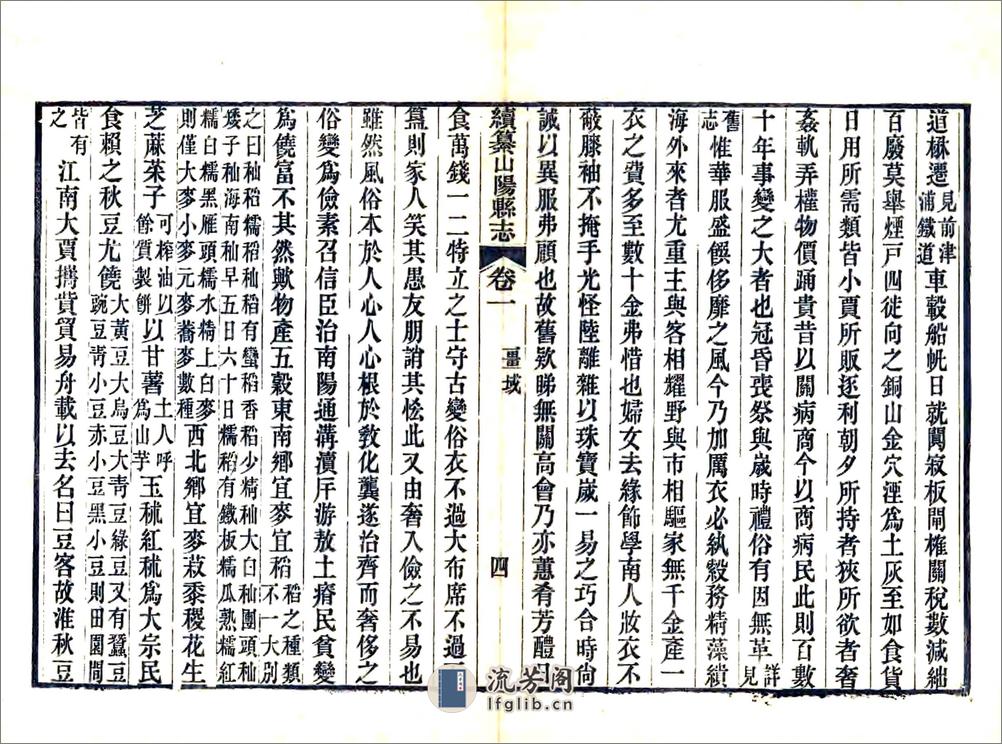 道梗遷見前津浦鐵道車轂船帆日就闃寂板閘榷關稅數減絀
百廢莫舉煙戸四徙向之銅山金穴湮爲土灰至如食貨
日用所需類皆小賈所販逐利朝夕所持者狹所欲者奢
姦軌弄權物價踊貴昔以關病商今以商病民此則百數
十年事變之大者也冠昏喪祭與歲時禮俗有因無革詳見
舊志惟華服盛饌侈靡之風今乃加厲衣必紈縠務精藻繢
海外來者尤重主與客相耀野與市相驅家無千金產一
衣之費多至數十金弗惜也婦女去緣飾學南人妝衣不
蔽膝袖不掩手光怪陸離雜以珠寶歲一易之巧合時尙
誠以異服弗顧也故舊欵睇無關高會乃亦蕙肴芳醴日
續纂山陽縣志 卷一 疆域 四
食萬錢一二特立之士守古變俗衣不過大布席不過
簋則家人笑其愚友朋誚其恡此又由奢入儉之不易也
雖然風俗本於人心人心根於敎化龔遂治齊而奢侈之
俗變爲儉素召信臣治南陽通溝瀆斥游敖土瘠民貧變
爲饒富不其然歟物產五穀東南鄉宜麥宜稻稻之種類不一大别
之曰秈稻糯稻秈稻有蠻稻香稻少精秈大白秈團頭秈
矮子秈海南秈早五日六十日糯稻有鐵板糯瓜熟糯紅
糯白糯黑雁頭糯水糯上白麥
則僅大麥小麥元麥蕎麥數種西北鄉宜麥菽黍稷花生
芝蔴菜子可榨油以餘質製餅以甘薯土人呼爲山芋玉秫紅秫爲大宗民
食賴之秋豆尤饒大黃豆大烏豆大靑豆綠豆又有蠶豆豌豆靑小豆赤小豆黑小豆則田園間
皆有之江南大賈攜貲貿易舟載以去名曰豆客故淮秋豆
流芳阁
lfglib.cn